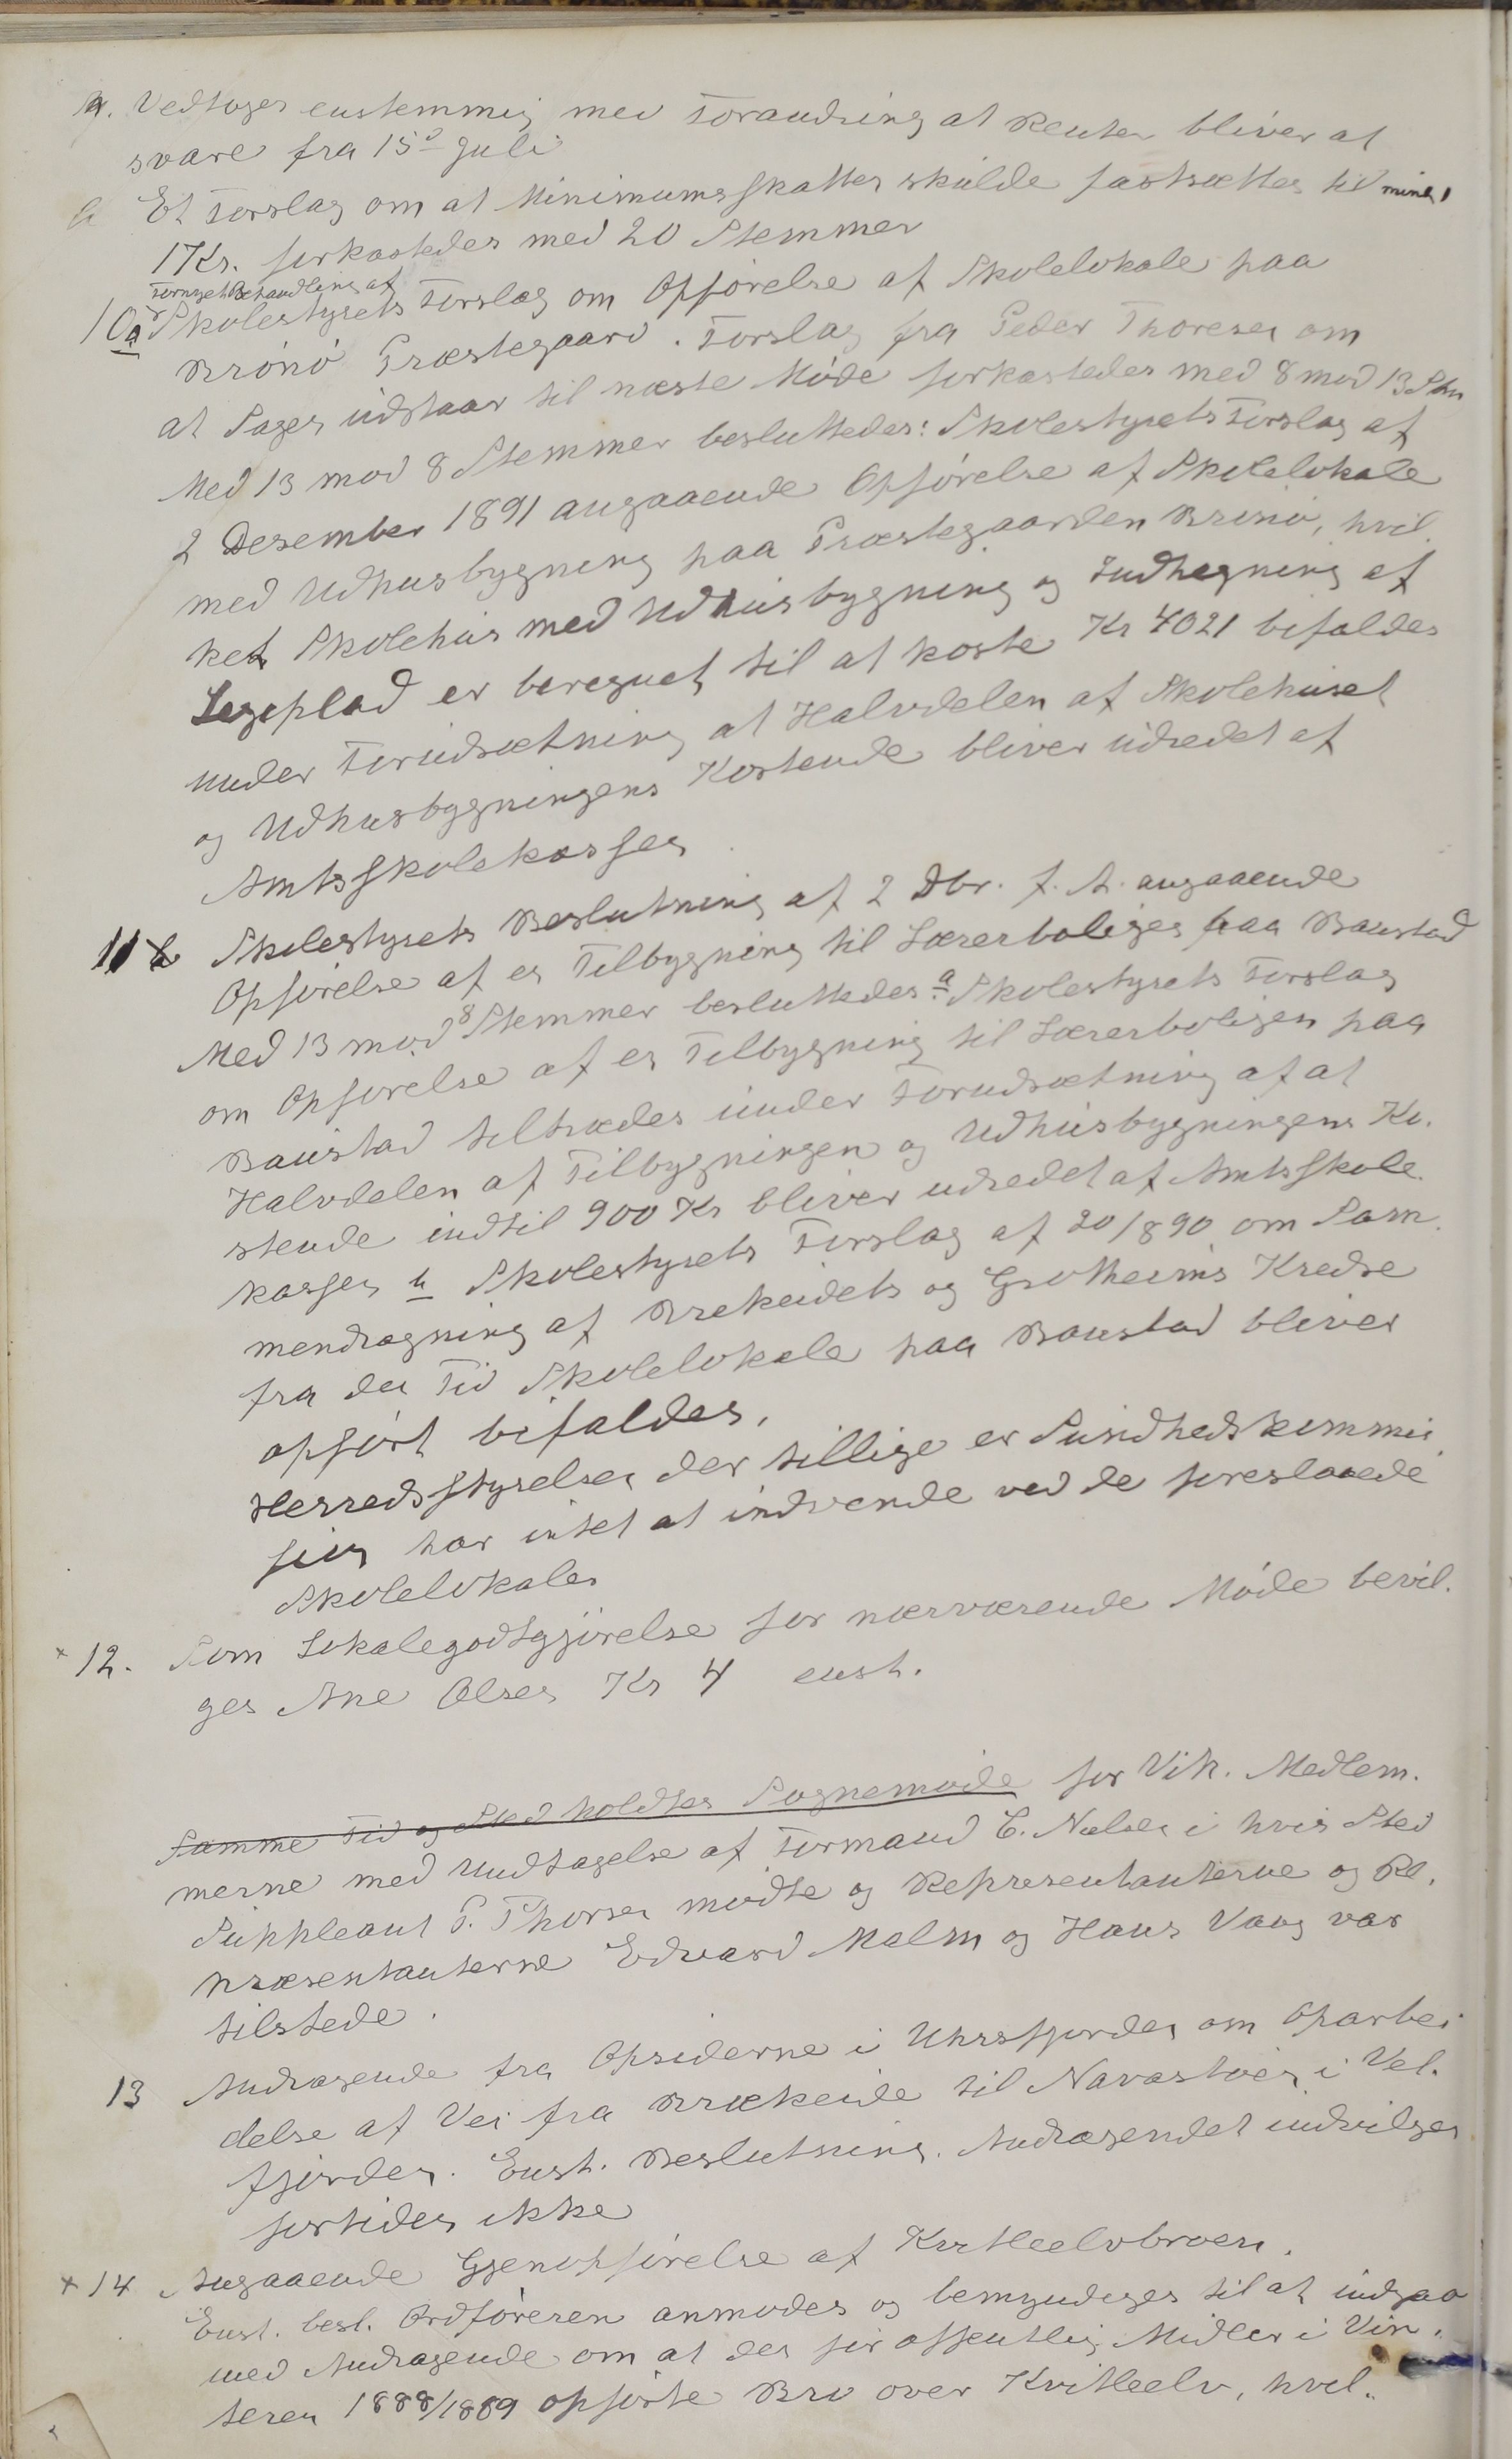 Vedtoges enstemmig med Forandring at Renter bliver at
svare fra 15de Juli
Et Forslag om at Minimumsskatten skulde fastsættes til mindst
1 Kr. forkastedes med 20 Stemmer
Fornyet Behandling af
10 a Skolestyrets Forslag om Opførelse af Skolelokale paa
Brønø Præstegaard. Forslag fra Peder Thoresen om
at Sagen udstaar til næste Møde forkastedes med 8 mod 13 Stm
Med 13 mod 8 Stemmer besluttedes: Skolestyrets Forslag af
2 Desember 1891 angaaende Opførelse af Skolelokale
med Udhusbygning paa Præstegaarden Brønø, hvil
ket Skolehus med Udhusbygning og Indhegning af
Legeplad er beregnet til at koste Kr 4021 bifaldes
under Forudsætning at Halvdelen af Skolehuset
og Udhusbygningens Kostende bliver udredet af
Amtsskolekassen
11 Skolestyrets Beslutning af 2 Dbr. f. A. angaaende
Opførelse af en Tilbygning til Lærerboligen paa Baustad
Med 13 mod 8 Stemmer besluttedes: a Skolestyrets Forslag
om Opførelse af en Tilbygning til Lærerboligen paa
Baustad tiltrædes under Forudsætning af at
Halvdelen af Tilbygningen og Udhusbygningens Ko.
stende indtil 900 Kr bliver udredet af Amtsskole
kassen b Skolestyrets Forslag af 20/8 90 om Sam
mendragning af Brekeidets og Grotheims Kredse
fra den Tid Skolelokale paa Baustad bliver
opført bifaldes.
Herredsstyrelsen der tillige er Sundhedskommis
sion har intet at indvende ved de foreslaaede
Skolelokaler
12. Som Lokalegodtgjørelse for nærværende Møde bevil.
ges Ane Olsen Kr 4 enst.
Samme Tid og Sted holdtes Sognemøde for Vik. Medlem.
merne med Undtagelse af Formand C. Nielsen i hvis Sted
Suppleant P. Thorsen mødte og Representanterne og Re.
præsentanterne Edvard Malm og Hans Vaag var
tilstede.
13 Andragende fra Opsiderne i Uhrsfjorden om Oparbei
delse af Vei fra Brækeide til Navastuen i Vel.
fjorden. Enst. Beslutning. Andragendet indvilges
fortiden ikke
14 Angaaende Gjenopførelse af Kvitteelvbroen.
Enst. besl. Ordføreren anmodes og bemyndiges til at indgaa
med Andragende om at den for offentlig Midler i Vin.
teren 1888/1889 opførte Bro over Kvitteelv, hvil.